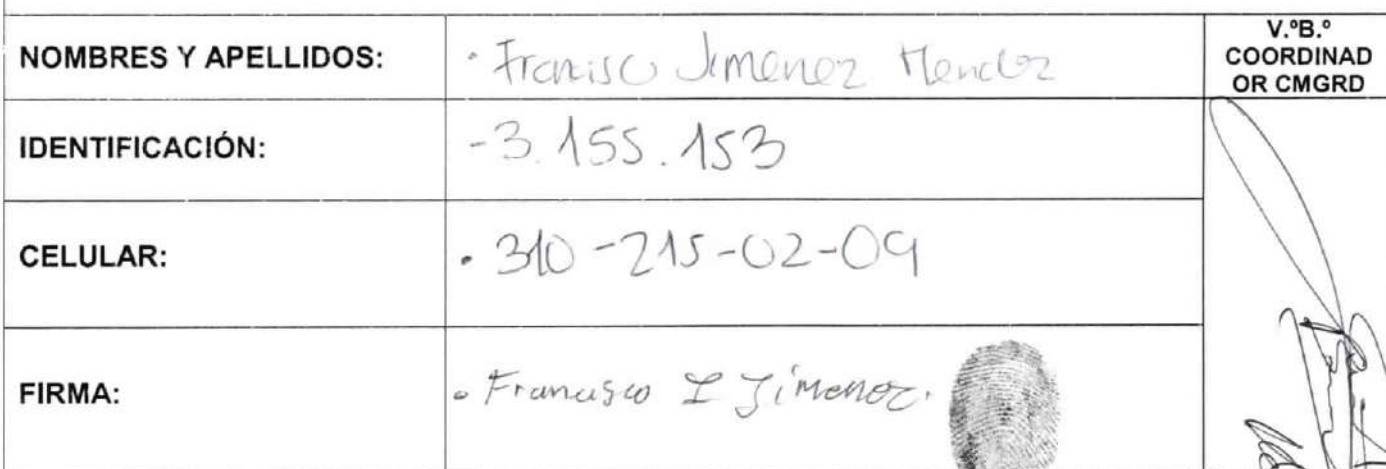 NOMBRES Y APELLIDOS: · Francisco Jimenez Mendez
V.ºB.º
COORDINAD
OR CMGRD
IDENTIFICACIÓN: -3.155.153
CELULAR: · 310-215-02-09
FIRMA: · Francisco I Jímenez.